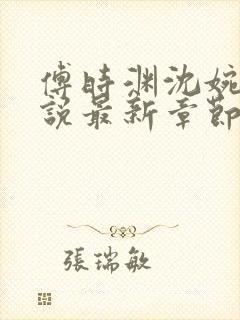 傅時渊沈婉
說最新章節
張瑞敏